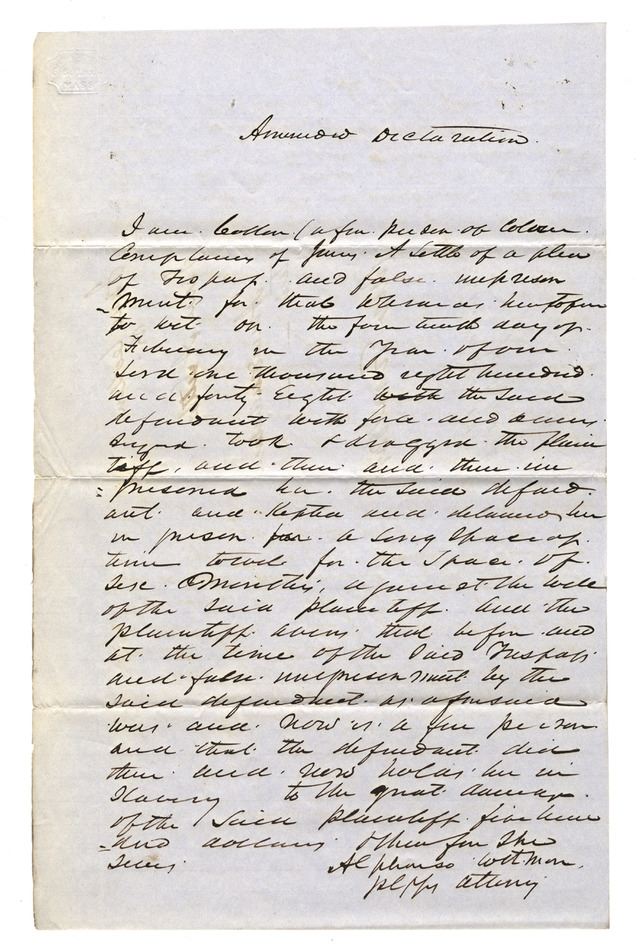 Amended Declaration
Jane Cotton (a free person of Colour
Complains of James A Settle of a plea
of Trespass and false imprison
-ment for that whereas heretofore
to wit on the fourteenth day of
February in the Year of our
Lord one thousand eight hundred
and forty Eight with the Said
defendant with force and arms
took & dragged the plain
tiff, and then and there im
=prisoned her the said defend
ant and Kept and detained her
in prison for a long space of
time towit for the Space of
Six Months, against the will
of the Said plaintiff And the
plaintiff avers that before and
at the time of the Said Trespass
and false imprisonment by the
Said defendant as aforesaid
was and now is a free person
and that the defendant did
then and now holds her in
Slavery to the great damage
of the Said Plaintiff five hun
=dred dollars Wherefore She
Sues
Alphonso Wetmore
plffs attorney